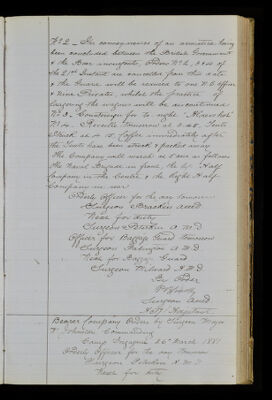 No 2 - In consequence of an armistice having
been concluded between the British Government
& the Boer insurgents, Orders No 2, 3 & 4 of
the 21st Instant are cancelled from this date
& the Guard will be reduced to one N.C. Officer
& Nine Privates, whilst the practice of
laagering the wagons will be discontinued
No 3. Countersign for to night "
No 4. Reveille tomorrow at 4 a.m., Tents
Struck at 4.15, Coffee immediately after
the Tents have been struck & packed away
The Company will march at 5 a.m. as follows
The Naval Brigade in front, the left Half
Company in the Centre & the Right Half
Company in rear
Orderly Officer for the day tomorrow
Surgeon
Next for duty
Surgeon A.M.D
Officer for Baggage Guard tomorrow
Surgeon A.M.D
Next for Baggage Guard
Surgeon A.M.D
By Order
Surgeon
Bearer Company Orders by Surgeon Major
Johnston Commanding
Camp Ingagane 26 March 1881
Orderly Officer for the day tomorrow
Surgeon A.M.D
Next for duty